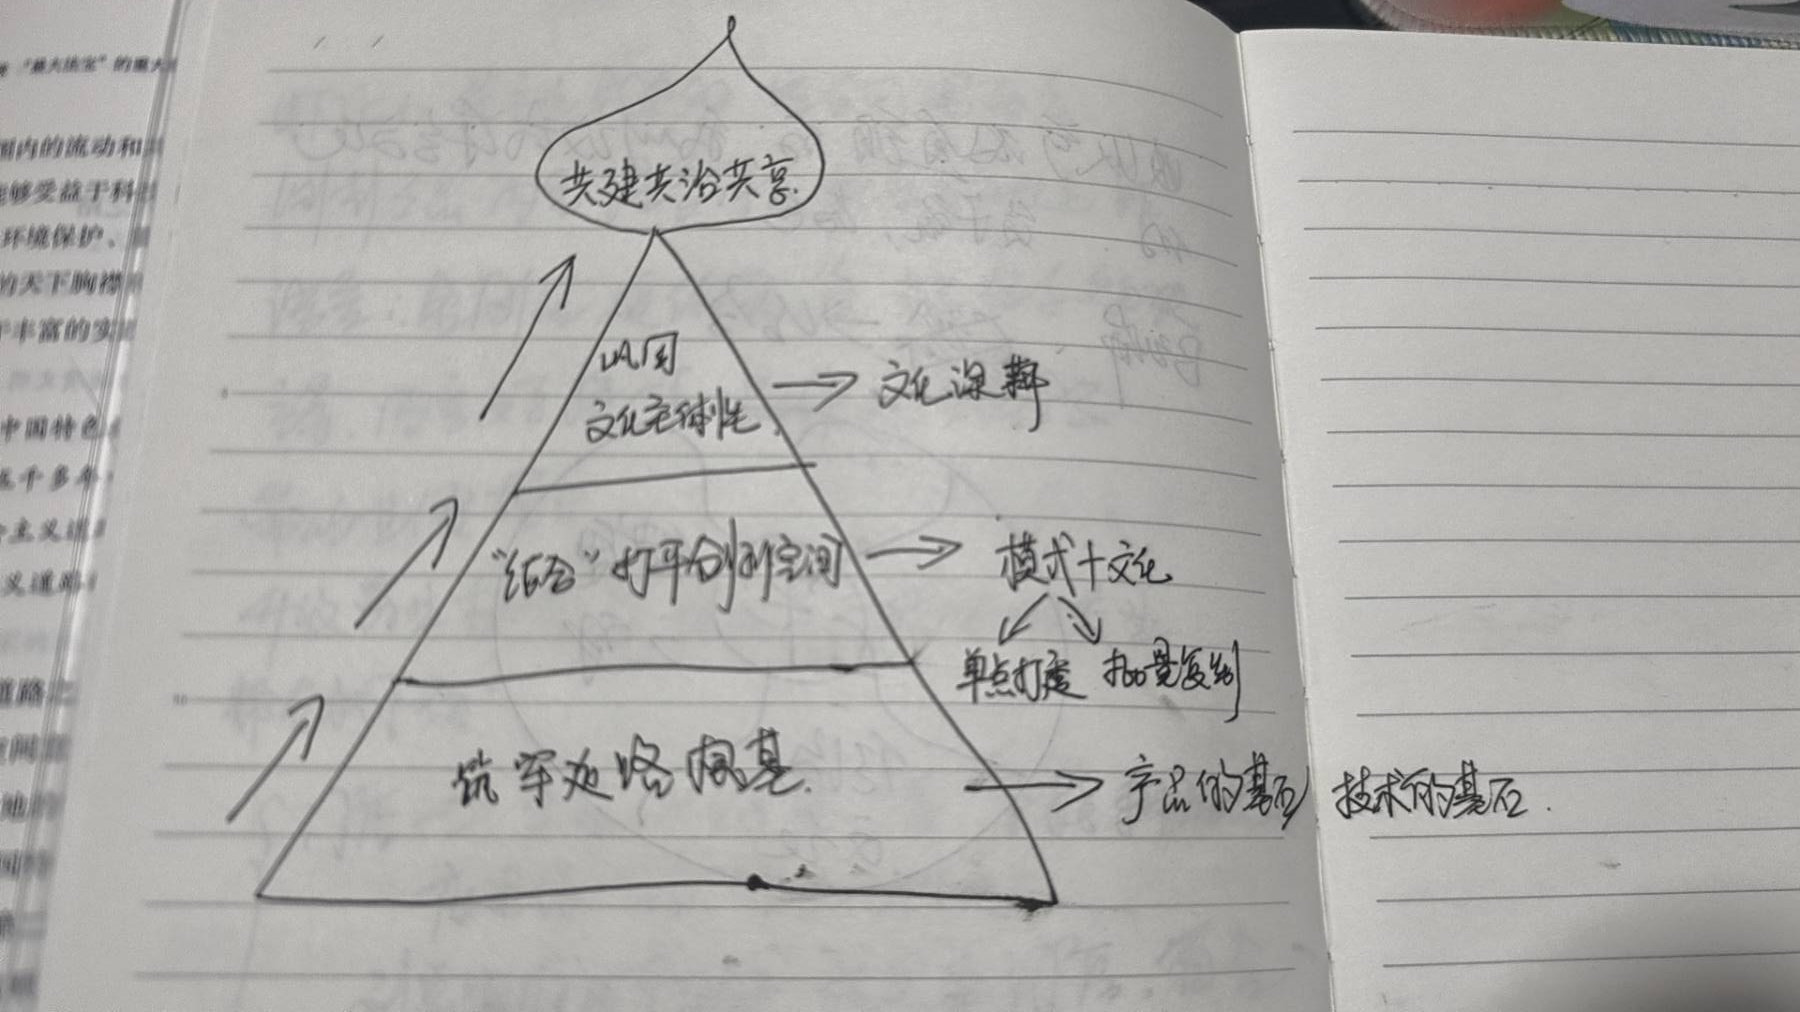 "最大法宝"的重大
国内的流动和
能够受益于科
环境保护、
的天下胸襟
丰富的实
中国特色
五千多年
主义道
义道路
道路之
共建共治共享
巩固
文化主体性
文化深耕
"结合"打开创新空间
模式+文化
单点打透 批量复制
筑牢道路根基
产品的基石 技术的基石